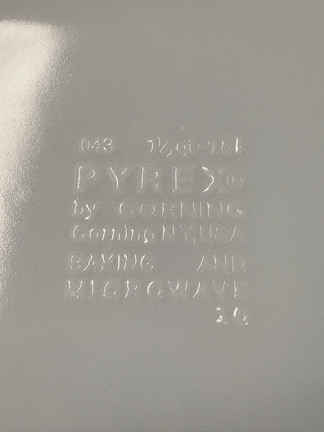 043 1½ QUART
PYREX®
by CORNING
Corning NY, USA
BAKING AND
MICROWAVE